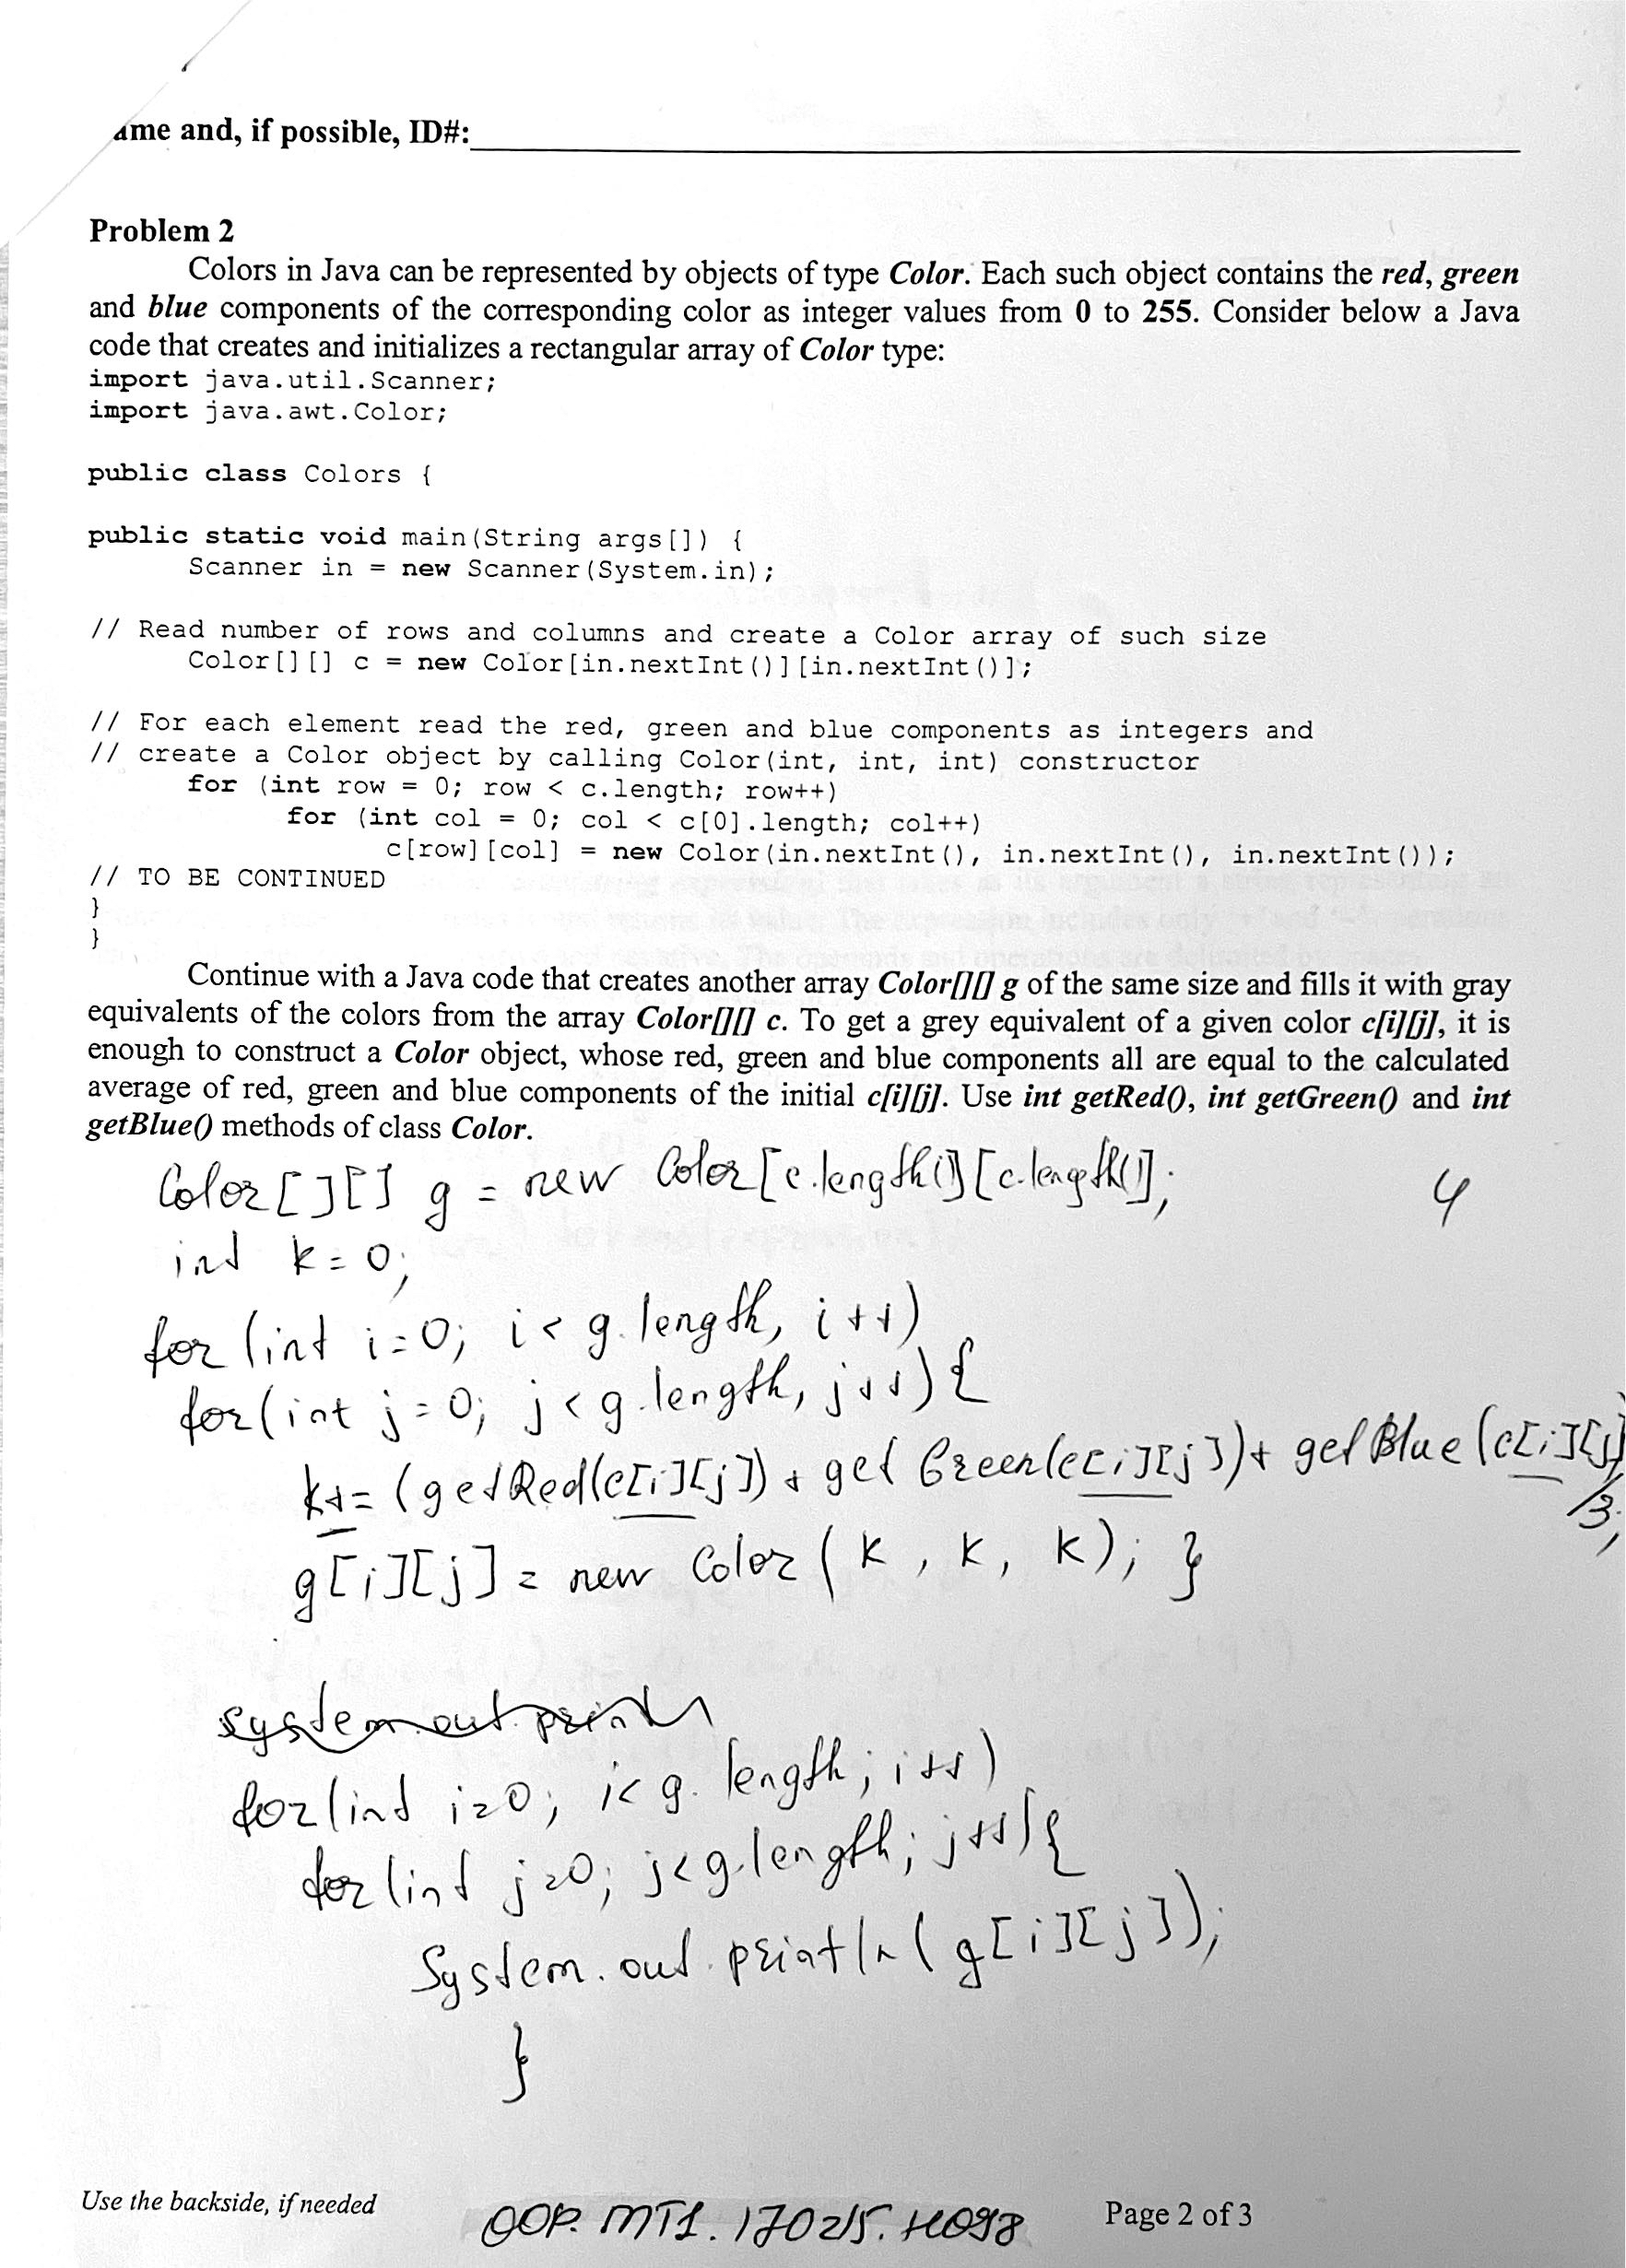 ame and, if possible, ID#:
Problem 2
Colors in Java can be represented by objects of type Color. Each such object contains the red, green
and blue components of the corresponding color as integer values from 0 to 255. Consider below a Java
code that creates and initializes a rectangular array of Color type:
import java.util.Scanner;
import java.awt.Color;
public class Colors {
public static void main(String args[]) {
Scanner in = new Scanner(System.in);
// Read number of rows and columns and create a Color array of such size
Color[][] c = new Color[in.nextInt()][in.nextInt()];
// For each element read the red, green and blue components as integers and
// create a Color object by calling Color(int, int, int) constructor
for (int row = 0; row < c.length; row++)
for (int col = 0; col < c[0].length; col++)
c[row][col] = new Color(in.nextInt(), in.nextInt(), in.nextInt());
// TO BE CONTINUED
}
}
Continue with a Java code that creates another array Color[][] g of the same size and fills it with gray
equivalents of the colors from the array Color[][] c. To get a grey equivalent of a given color c[i][j], it is
enough to construct a Color object, whose red, green and blue components all are equal to the calculated
average of red, green and blue components of the initial c[i][j]. Use int getRed(), int getGreen() and int
getBlue() methods of class Color.
Color[][] g = new Color[c.length()][c.length()]; 4
int k = 0;
for (int i=0; i< g.length, i++)
for(int j=0; j<g.length, j++){
k+= (getRed(c[i][j]) + getGreen(c[i][j])+ getBlue(c[i][j])
/3;
g[i][j] = new Color(k, k, k); }
system.out.println
for(int i=0; i<g.length; i++)
for(int j=0; j<g.length; j++){
System.out.println(g[i][j]);
}
Use the backside, if needed
OOP. MT1. 170215. H098
Page 2 of 3